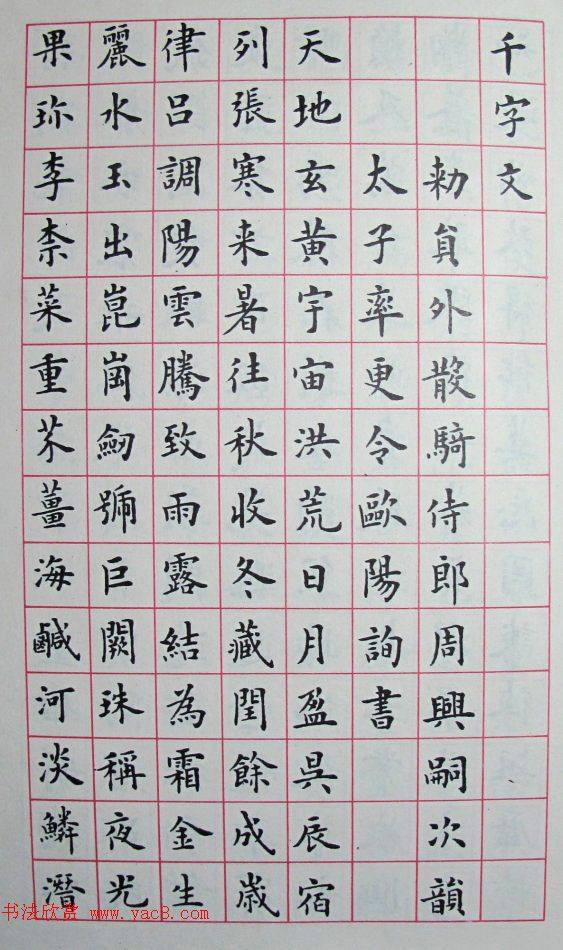 千字文
勅員外散騎侍郎周興嗣次韻
太子率更令歐陽詢書
天地玄黄宇宙洪荒日月盈昃辰宿
列張寒来暑往秋收冬藏閏餘成歲
律呂調陽雲騰致雨露結為霜金生
麗水玉出崑崗劒號巨闕珠稱夜光
果珎李柰菜重芥薑海鹹河淡鱗潛
书法欣赏 www.yac8.com